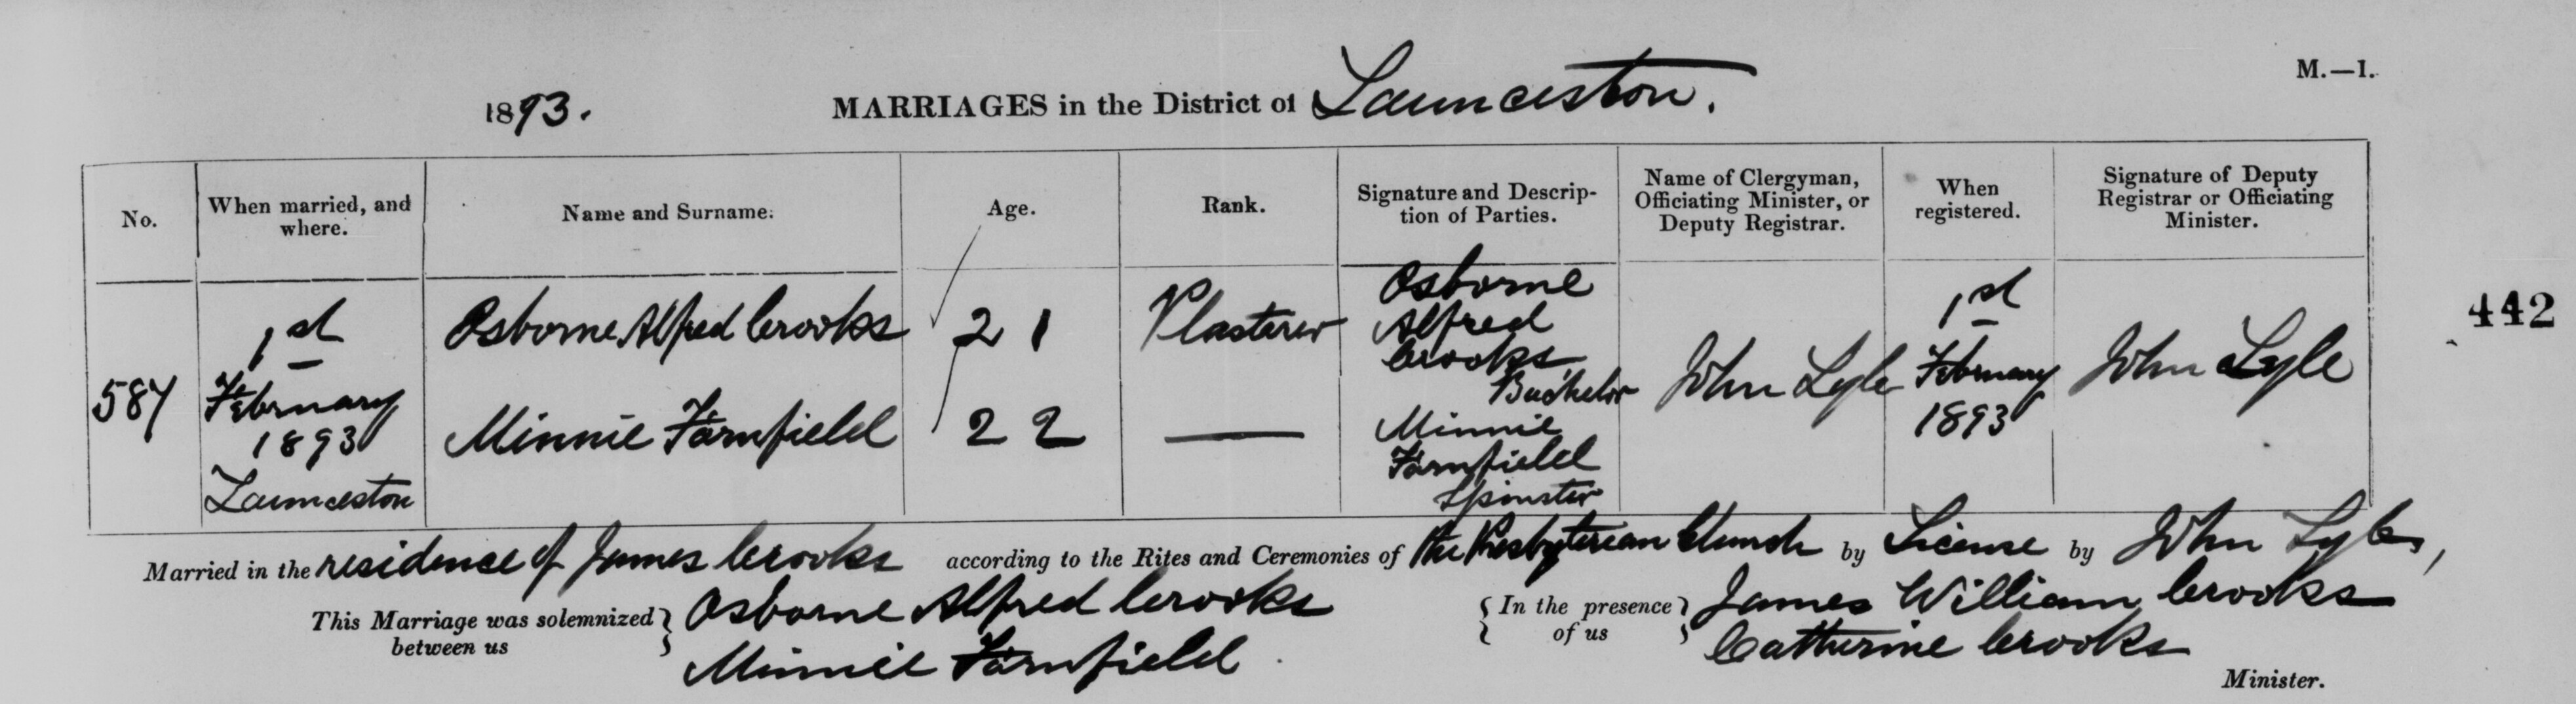 M.—1.
1893. MARRIAGES in the District of Launceston.
No. When married, and where. Name and Surname. Age. Rank. Signature and Description of Parties. Name of Clergyman, Officiating Minister, or Deputy Registrar. When registered. Signature of Deputy Registrar or Officiating Minister.
587
1st
February
1893
Launceston
Osborne Alfred Crooks 21 Plasterer
Minnie Farnfield 22 —
Osborne
Alfred
Crooks
Bachelor
Minnie
Farnfield
Spinster
John Lyle
1st
February
1893
John Lyle
442
Married in the residence of James Crooks according to the Rites and Ceremonies of the Presbyterian Church by License by John Lyle,
This Marriage was solemnized between us { Osborne Alfred Crooks
Minnie Farnfield.
{ In the presence of us } James William Crooks
Catherine Crooks
Minister.